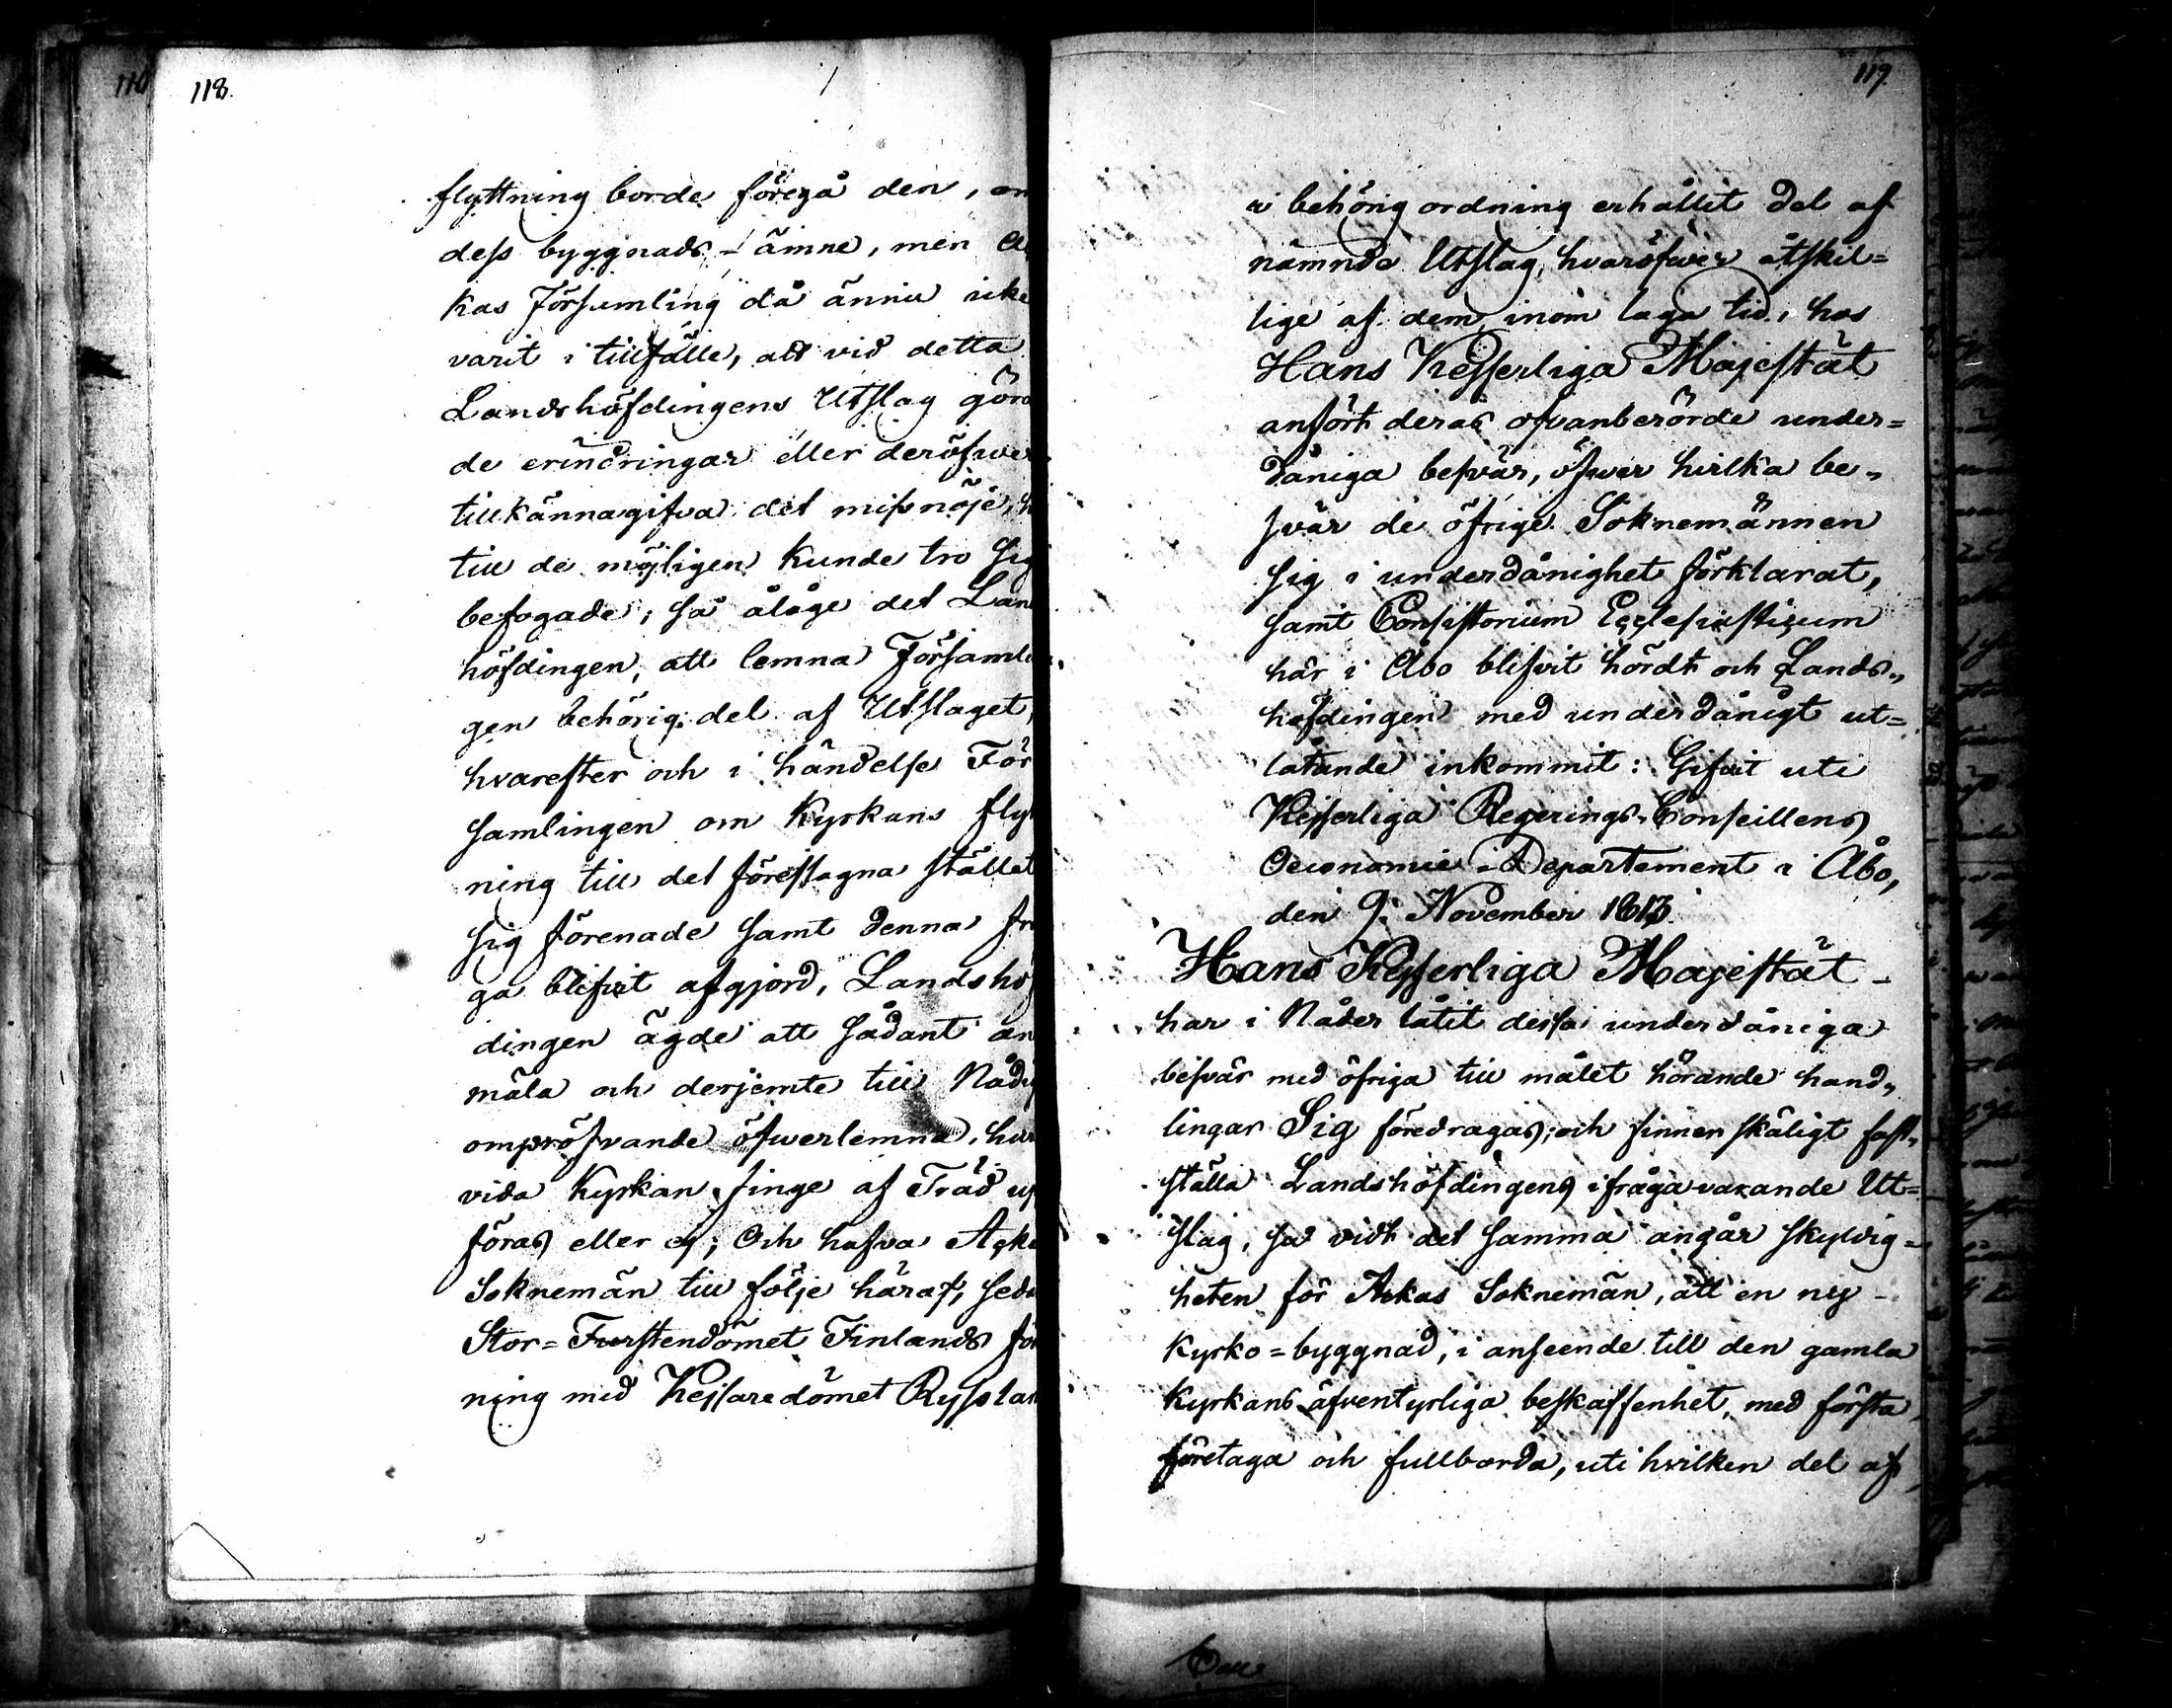 118.
flyttning borde föregå den, on
dess byggnads-ämne, men A
kas Församling då ännu icke
varit i tillfälle, att vid detta
Landshöfdingens Utslag göra
de erindringar eller deröfwer
tillkännagifva det missnöje, h
till de möjligen kunde tro sig
befogade; så åläge det Lan
höfdingen, att lemna Församl
gen behörig del af Utslaget,
hvarefter och i händelse För
samlingen om Kyrkans flyt
ning till det föreslagna stället
sig förenade samt denna frå
ga blifvit afgjord, Landshöf
dingen ägde att sådant an
mäla och derjemte till Nådi
ompröfvande öfwerlemna, hur
vida Kyrkan finge af Träd up
föras eller ej; Och hafva Acka
Soknemän till följe häraf, seda
Stor=Furstendömet Finlands för
ning med Kejsaredömet Ryssland
119.
i behörig ordning erhållit del af
nämnde Utslag, hvaröfwer åtskil=
lige af dem inom laga tid, hos
Hans Kejserliga Majestät
anfört deras ofvanberörde under=
dåniga besvär, öfwer hvilka be„
svär de öfrige Soknemännen
sig i underdånighet förklarat,
samt Consistorium Ecclesiasticum
här i Åbo blifvit hördt och Lands„
höfdingen med underdånigt ut=
låtande inkommit: Gifvit uti
Kejserliga Regerings-Conseillens
Oeconomie-Departement i Åbo,
den 9. November 1813.
Hans Kejserliga Majestät -
har i Nåder låtit dessa underdåniga
besvär med öfriga till målet hörande hand„
lingar Sig föredragas; och finner skäligt fast„
ställa Landshöfdingens ifrågavarande Ut=
slag, så vidt det samma angår skyldig=
heten för Ackas Soknemän, att en ny -
Kyrko=byggnad, i anseende till den gamla
Kyrkans äfventyrliga beskaffenhet, med första
företaga och fullborda, uti hvilken del af